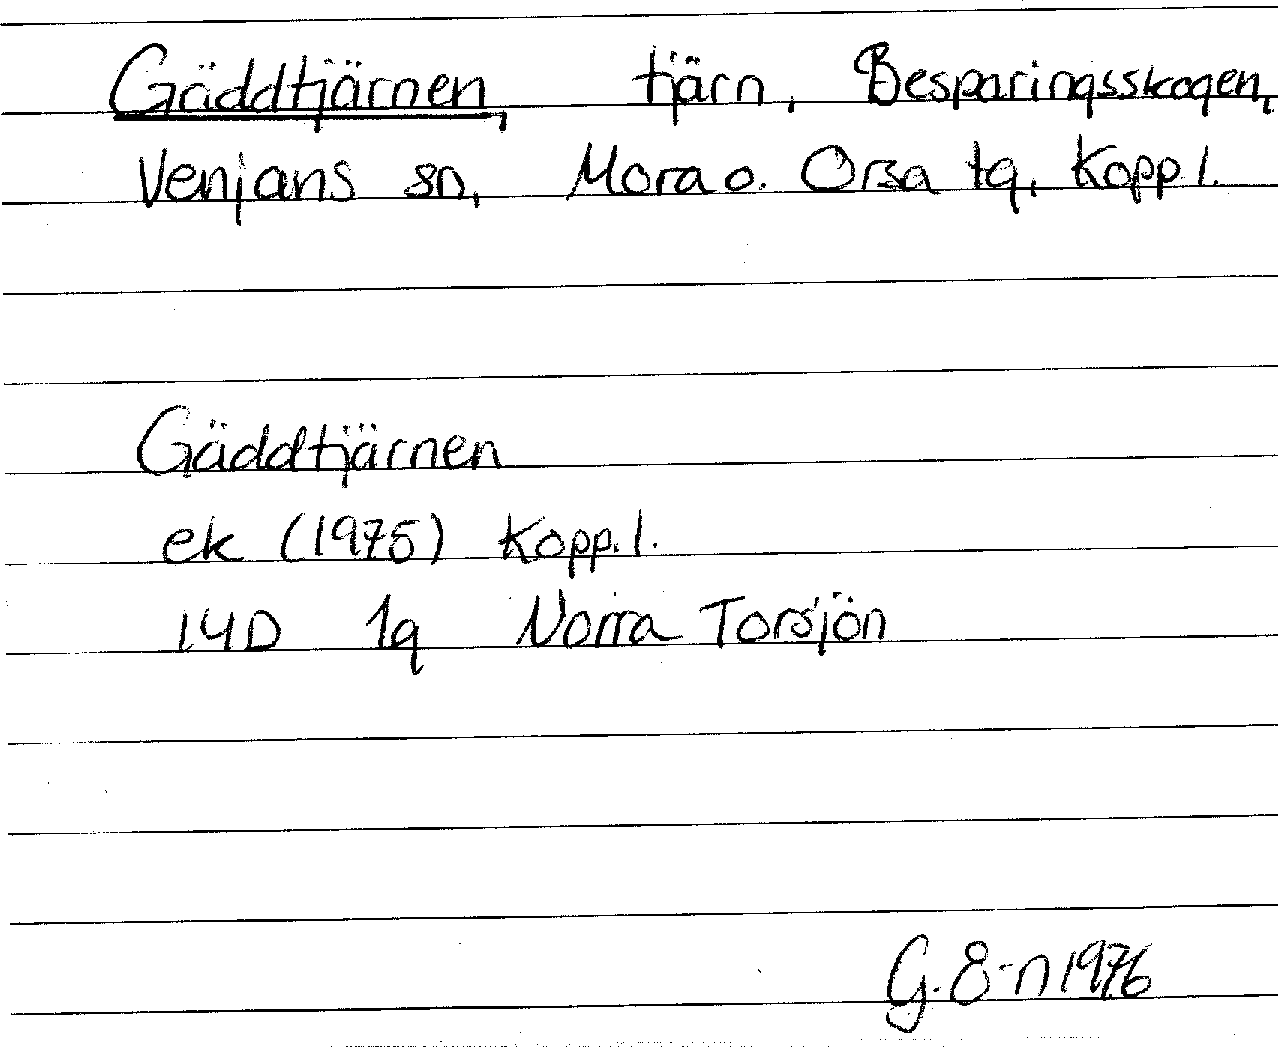 Gäddtjärnen, tjärn, Besparingsskogen,
Venjans sn, Mora o. Orsa tg, Kopp l.
Gäddtjärnen
ek (1975) Kopp. l.
14D 1g Norra Torsjön
G. S-n 1976